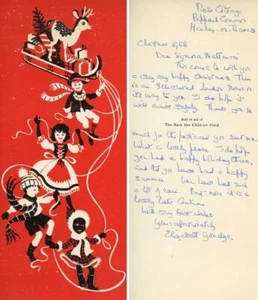 Rose Cottage
Peppard Common
Henley-on-Thames
Christmas
Dear Signora
This comes to wish you
a very happy Christmas. There
is a
its way to you. I do hope it
will arrive safely. Thank you so
Sold in aid of
The Save the Children Fund
much for the postcard you sent me.
What a lovely place. I do hope
you had a happy holiday there,
and that you have had a happy
summer. We have had such
a lot of rain. But now it is a
lovely late Autumn
With very best wishes
Yours affectionately
Elizabeth Goudge